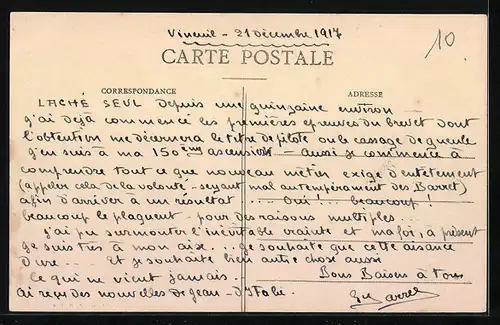 Vineuil - 21 décembre 1917
10
CARTE POSTALE
CORRESPONDANCE
ADRESSE
LACHÉ SEUL depuis une quinzaine environ
j'ai déjà commencé les premières épreuves du brevet dont
l'obtention me décernera le titre de pilote ou le cassage de gueule
j'en suis à ma 150ème ascension - aussi je commence à
comprendre tout ce que nouveau métier exige d'entêtement
(appeler cela de la volonté - seyant mal au tempérament des Barret)
afin d'arriver à un résultat ... Oui! .. beaucoup!
beaucoup le plaquent - pour des raisons multiples...
j'ai pu surmonter l'inévitable crainte et ma foi, à présent
je suis très à mon aise... je souhaite que cette aisance
dure .. Et je souhaite bien autre chose aussi
Ce qui ne vient jamais.
Bons Baisers à tous
ai reçu des nouvelles de Jean - d'Italie.